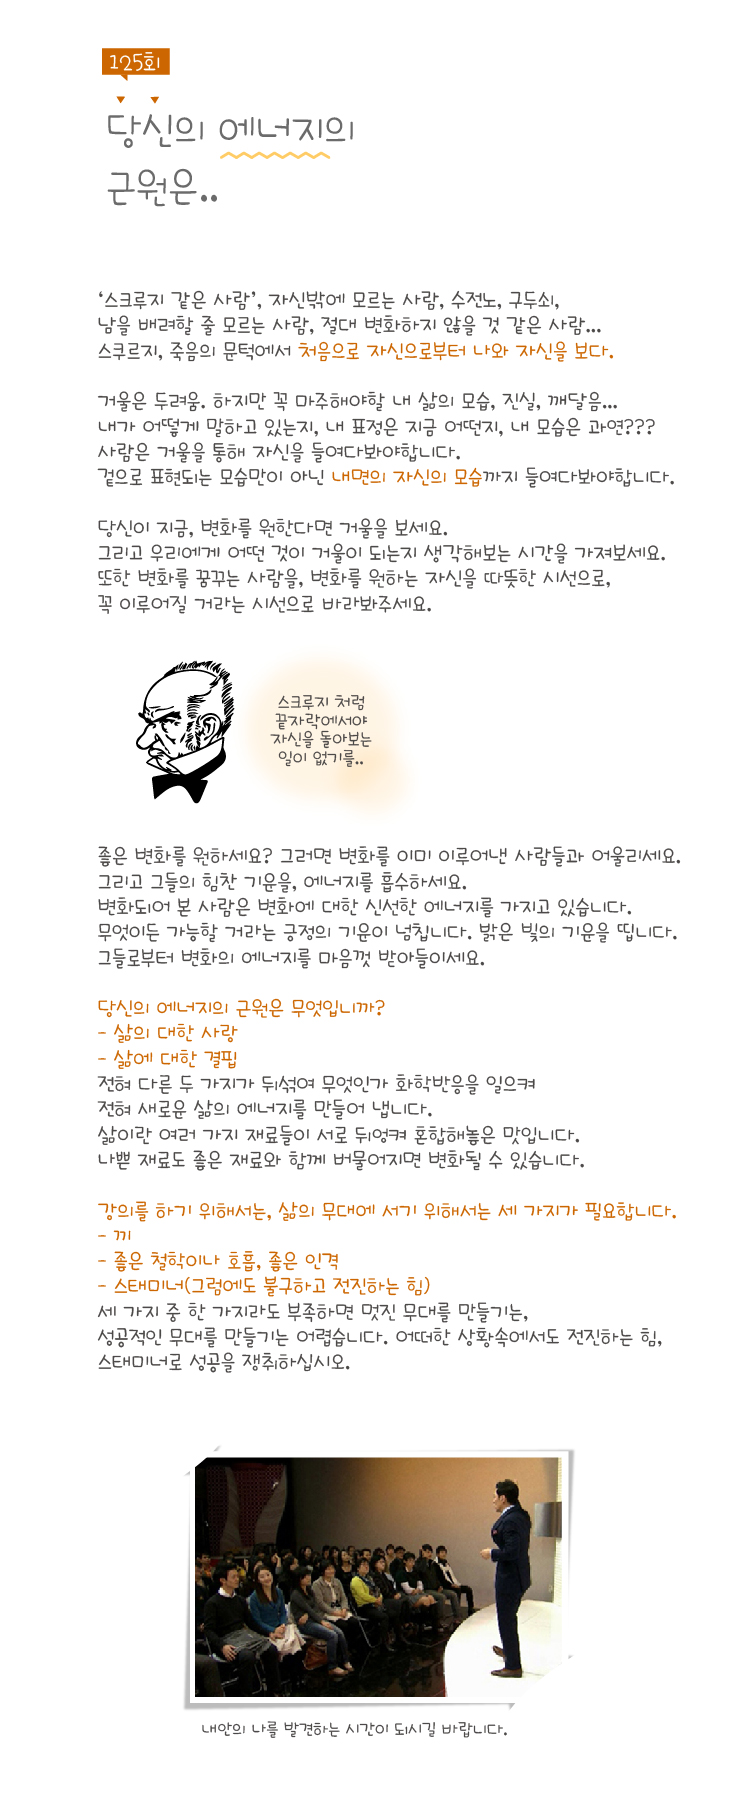 125회
당신의 에너지의
근원은..
‘스크루지 같은 사람’, 자신밖에 모르는 사람, 수전노, 구두쇠,
남을 배려할 줄 모르는 사람, 절대 변화하지 않을 것 같은 사람...
스쿠르지, 죽음의 문턱에서 처음으로 자신으로부터 나와 자신을 보다.
거울은 두려움. 하지만 꼭 마주해야할 내 삶의 모습, 진실, 깨달음...
내가 어떻게 말하고 있는지, 내 표정은 지금 어떤지, 내 모습은 과연???
사람은 거울을 통해 자신을 들여다봐야합니다.
겉으로 표현되는 모습만이 아닌 내면의 자신의 모습까지 들여다봐야합니다.
당신이 지금, 변화를 원한다면 거울을 보세요.
그리고 우리에게 어떤 것이 거울이 되는지 생각해보는 시간을 가져보세요.
또한 변화를 꿈꾸는 사람을, 변화를 원하는 자신을 따뜻한 시선으로,
꼭 이루어질 거라는 시선으로 바라봐주세요.
스크루지 처럼
끝자락에서야
자신을 돌아보는
일이 없기를..
좋은 변화를 원하세요? 그러면 변화를 이미 이루어낸 사람들과 어울리세요.
그리고 그들의 힘찬 기운을, 에너지를 흡수하세요.
변화되어 본 사람은 변화에 대한 신선한 에너지를 가지고 있습니다.
무엇이든 가능할 거라는 긍정의 기운이 넘칩니다. 밝은 빛의 기운을 띱니다.
그들로부터 변화의 에너지를 마음껏 받아들이세요.
당신의 에너지의 근원은 무엇입니까?
- 삶의 대한 사랑
- 삶에 대한 결핍
전혀 다른 두 가지가 뒤섞여 무엇인가 화학반응을 일으켜
전혀 새로운 삶의 에너지를 만들어 냅니다.
삶이란 여러 가지 재료들이 서로 뒤엉켜 혼합해놓은 맛입니다.
나쁜 재료도 좋은 재료와 함께 버물어지면 변화될 수 있습니다.
강의를 하기 위해서는, 삶의 무대에 서기 위해서는 세 가지가 필요합니다.
- 끼
- 좋은 철학이나 호흡, 좋은 인격
- 스태미너(그럼에도 불구하고 전진하는 힘)
세 가지 중 한 가지라도 부족하면 멋진 무대를 만들기는,
성공적인 무대를 만들기는 어렵습니다. 어떠한 상황속에서도 전진하는 힘,
스태미너로 성공을 쟁취하십시오.
내안의 나를 발견하는 시간이 되시길 바랍니다.